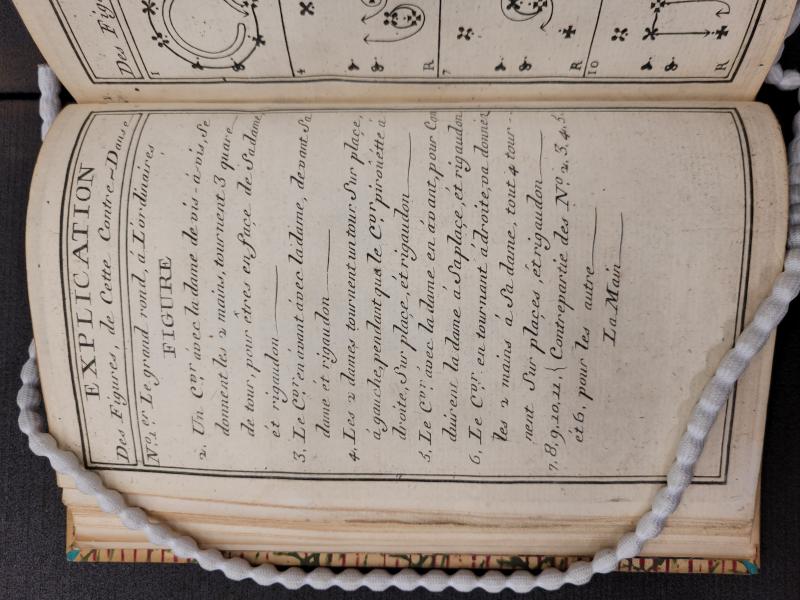 EXPLICATION
Des Figures, de Cette Contre-Danse
N.º 1.er Le grand rond, á L'ordinaires
FIGURE
2. Un C.er avec la dame de vis-à-vis, Se
donnent les 2 mains, tournent 3 quare
de tour, pour êtres en face de Sa dame
et rigaudon
3. Le C.er en avant avec la dame, devant Sa
dame et rigaudon
4. Les 2 dames tournent un tour Sur place,
a gauche, pendant que le C.er piroüette à
droite, Sur place, et rigaudon
5. Le C.er avec la dame en avant, pour Con
duirent la dame á Sa place, et rigaudon
6. Le C.er en tournant á droite, va donner
les 2 mains á Sa dame, tout 4 tour-
nent Sur places, et rigaudon
7, 8, 9, 10, 11, Contrepartie des N.º 2, 3, 4, 5,
et 6, pour les autre
La Main
Des Figu
1
4
R
7
R
10
R